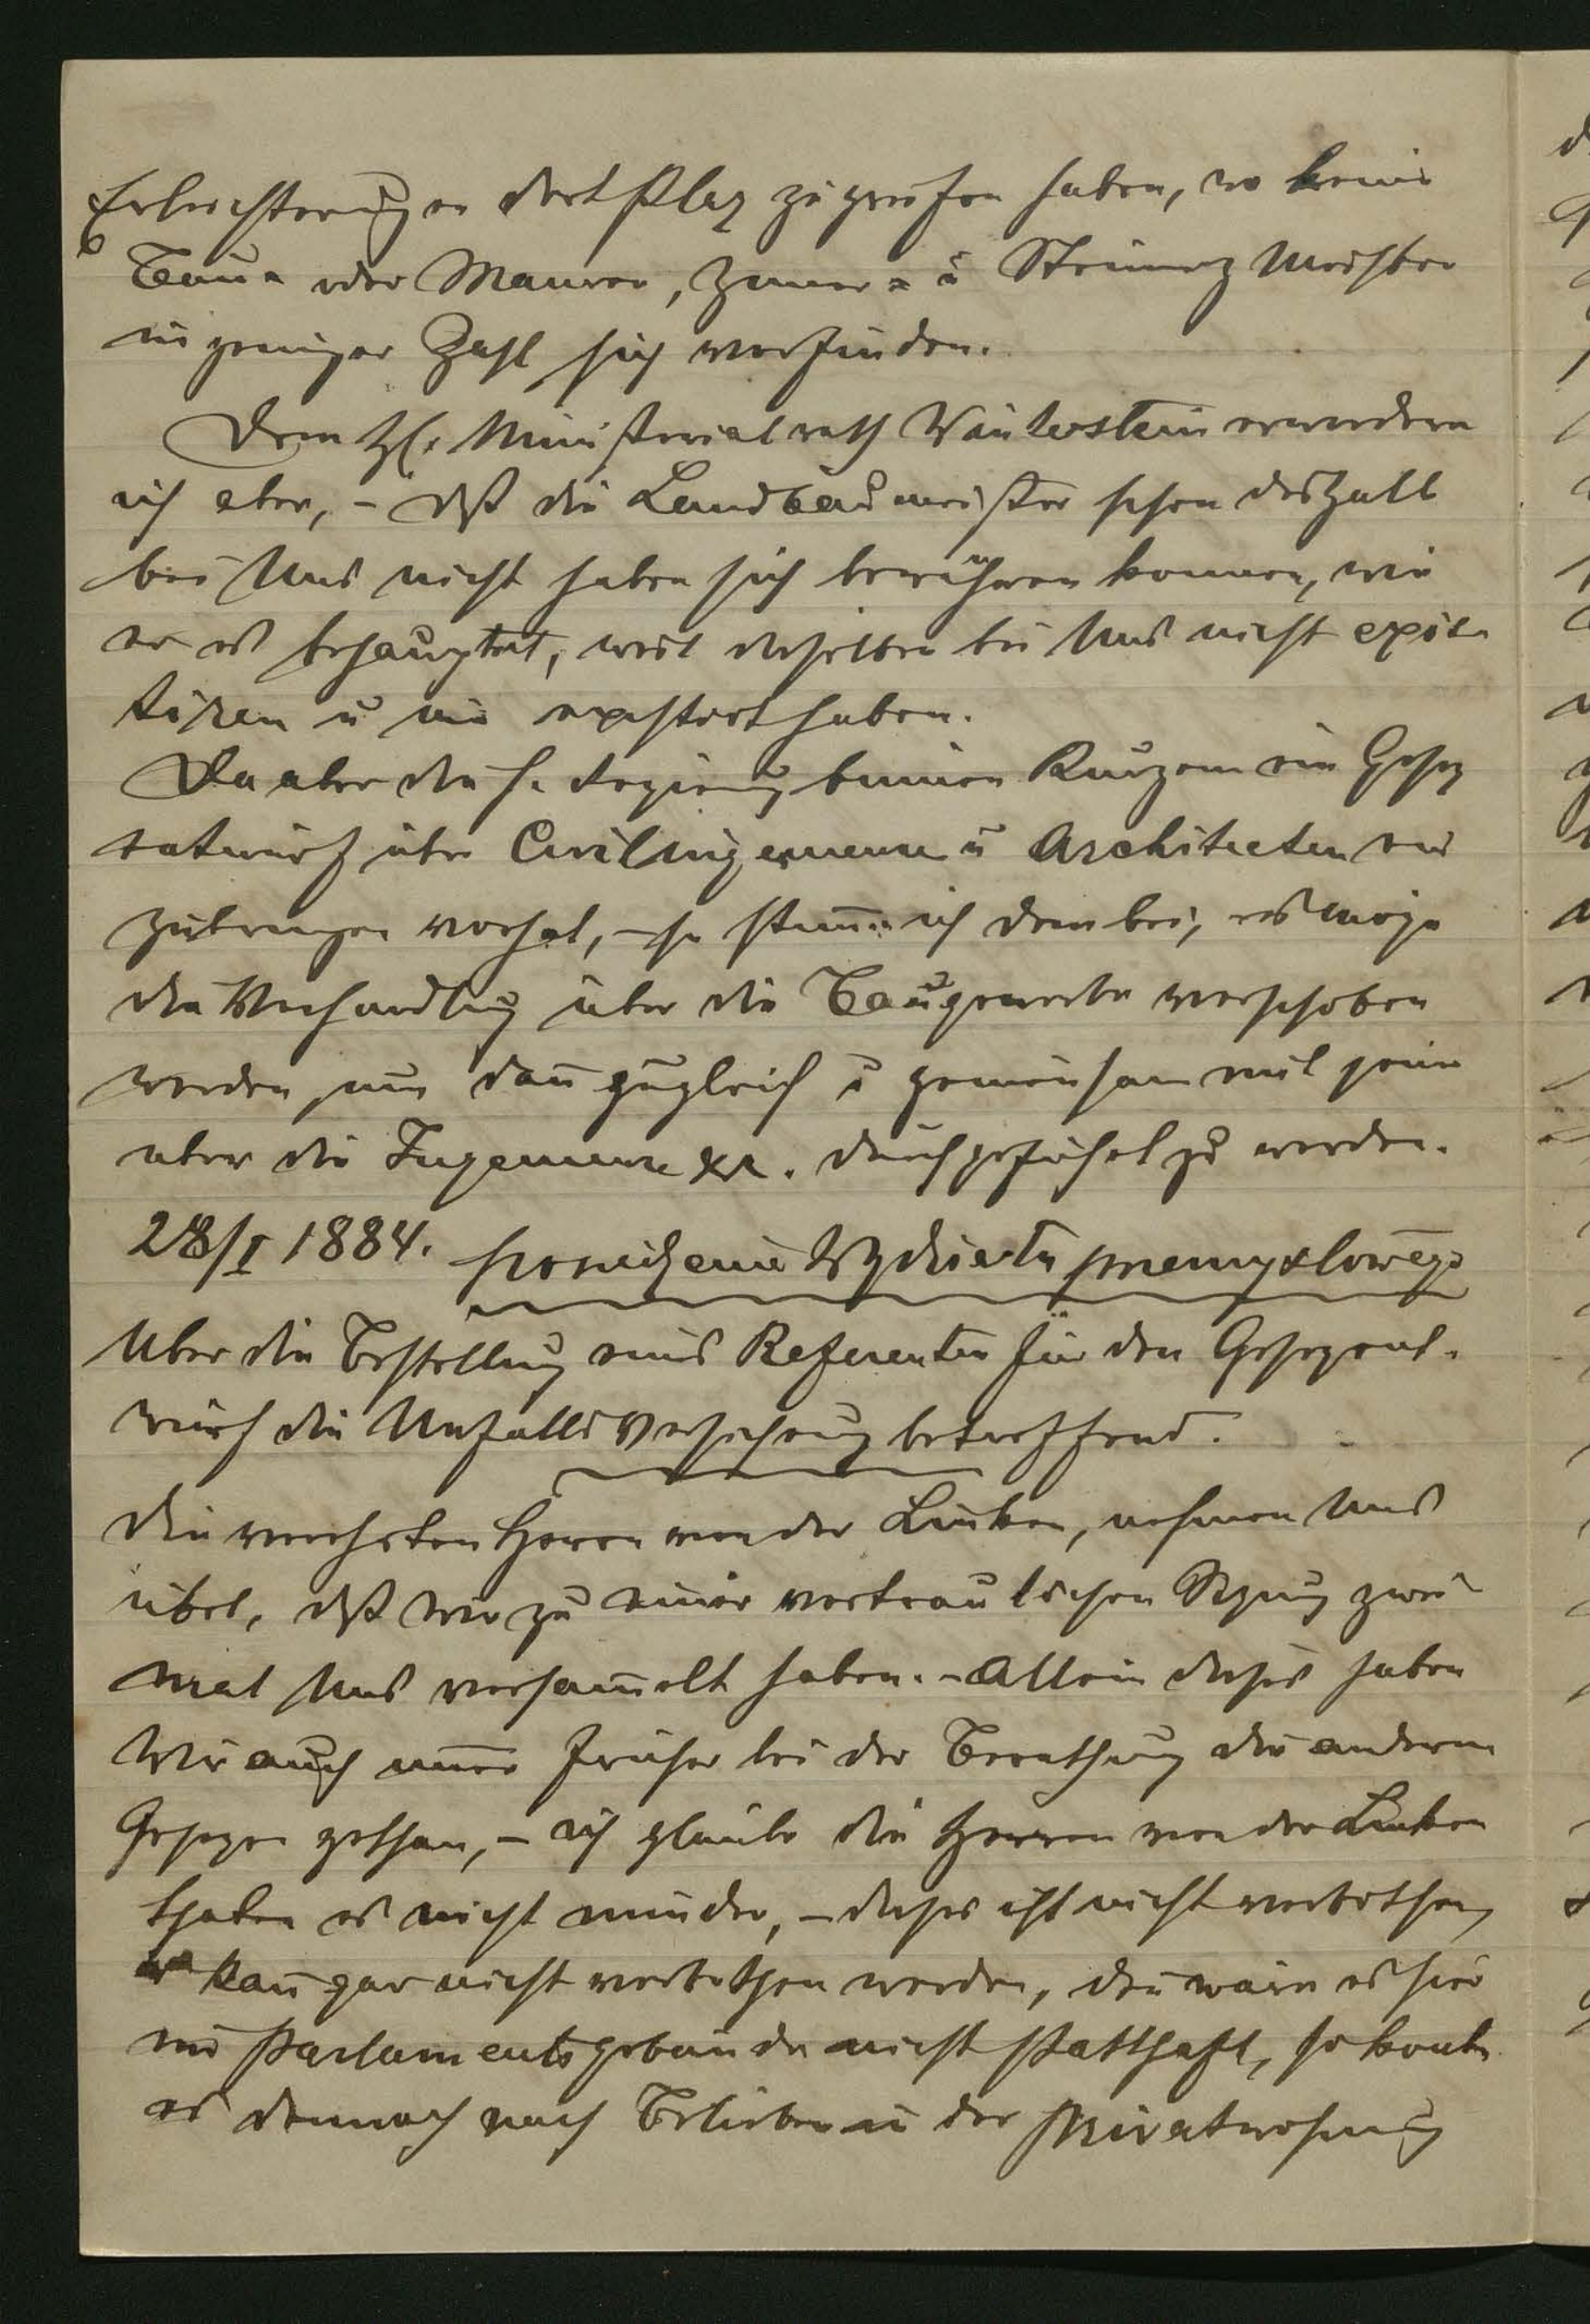 Erleichterungen dort Platz zu greifen haben, wo keine
Bau- oder Maurer, Zimer- u Steinmetz Meister
in geniger Zahl sich vorfinden.
Dem H. Ministerialrath Wainlerstein erwiedere
ich aber, – dß die Landbaumeister schon deshalb
bei Uns nicht haben sich bewähren konnen, wie
er es behauptet, weil dieselben bei Uns nicht exis-
tiren u nie existirt haben.
Da aber die h. Regierung binnen Kurzem ein Gesez
entwurf über Civilingenieure u Architecten ein
zubringen vorhat, – so stimme ich dem bei, es möge
die Verhandlung über die Baugewerbe verschoben
werden, um dan zugleich u gemeinsam mit jene
uber die Ingenieure xx. durchgeführt zu werden.
28/I 1884. posiedzenie Wydziału przemysłowego
Uber die Bestellung eines Referenten für den Gesezent-
wurf die Unfalls Versicherung betreffend.
Die verehrten Herren von der Linken, nehmen Uns
übel, dß wir zu einer vertraulichen Sizung zwei
mal Uns versamelt haben. – Allein dieses haben
Wir auch imer früher bei der Berathung der anderen
Geseze gethan, – ich glaube die Herren von der Linken
thaten es nicht minder, – dieses ist nicht verbothen,
kan gar nicht verbothen werden, den wäre es hier
im Parlamentsgebäude nicht statthaft, so konte
es dennoch nach Belieben in der Privatwohnung